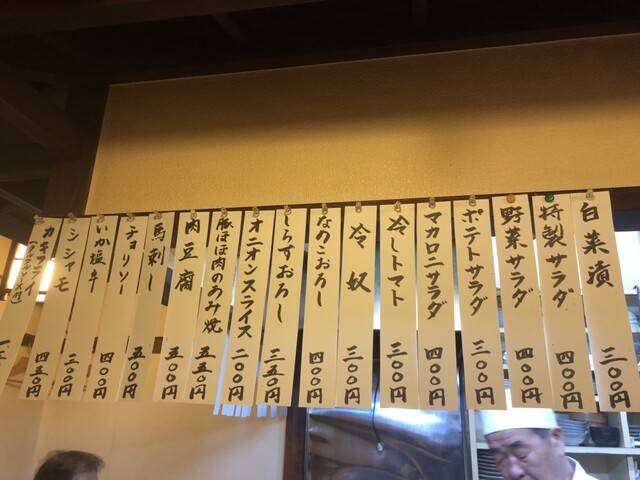 白菜漬 三〇〇円
特製サラダ 四〇〇円
野菜サラダ 四〇〇円
ポテトサラダ 三〇〇円
マカロニサラダ 四〇〇円
冷しトマト 三〇〇円
冷奴 三〇〇円
なめこおろし 四〇〇円
しらすおろし 三五〇円
オニオンスライス 二〇〇円
豚ほほ肉のあみ焼 五五〇円
肉豆腐 五〇〇円
馬刺し 五〇〇円
チョリソー 五〇〇円
いか塩辛 四〇〇円
シシャモ 三〇〇円
カキフライ 四五〇円